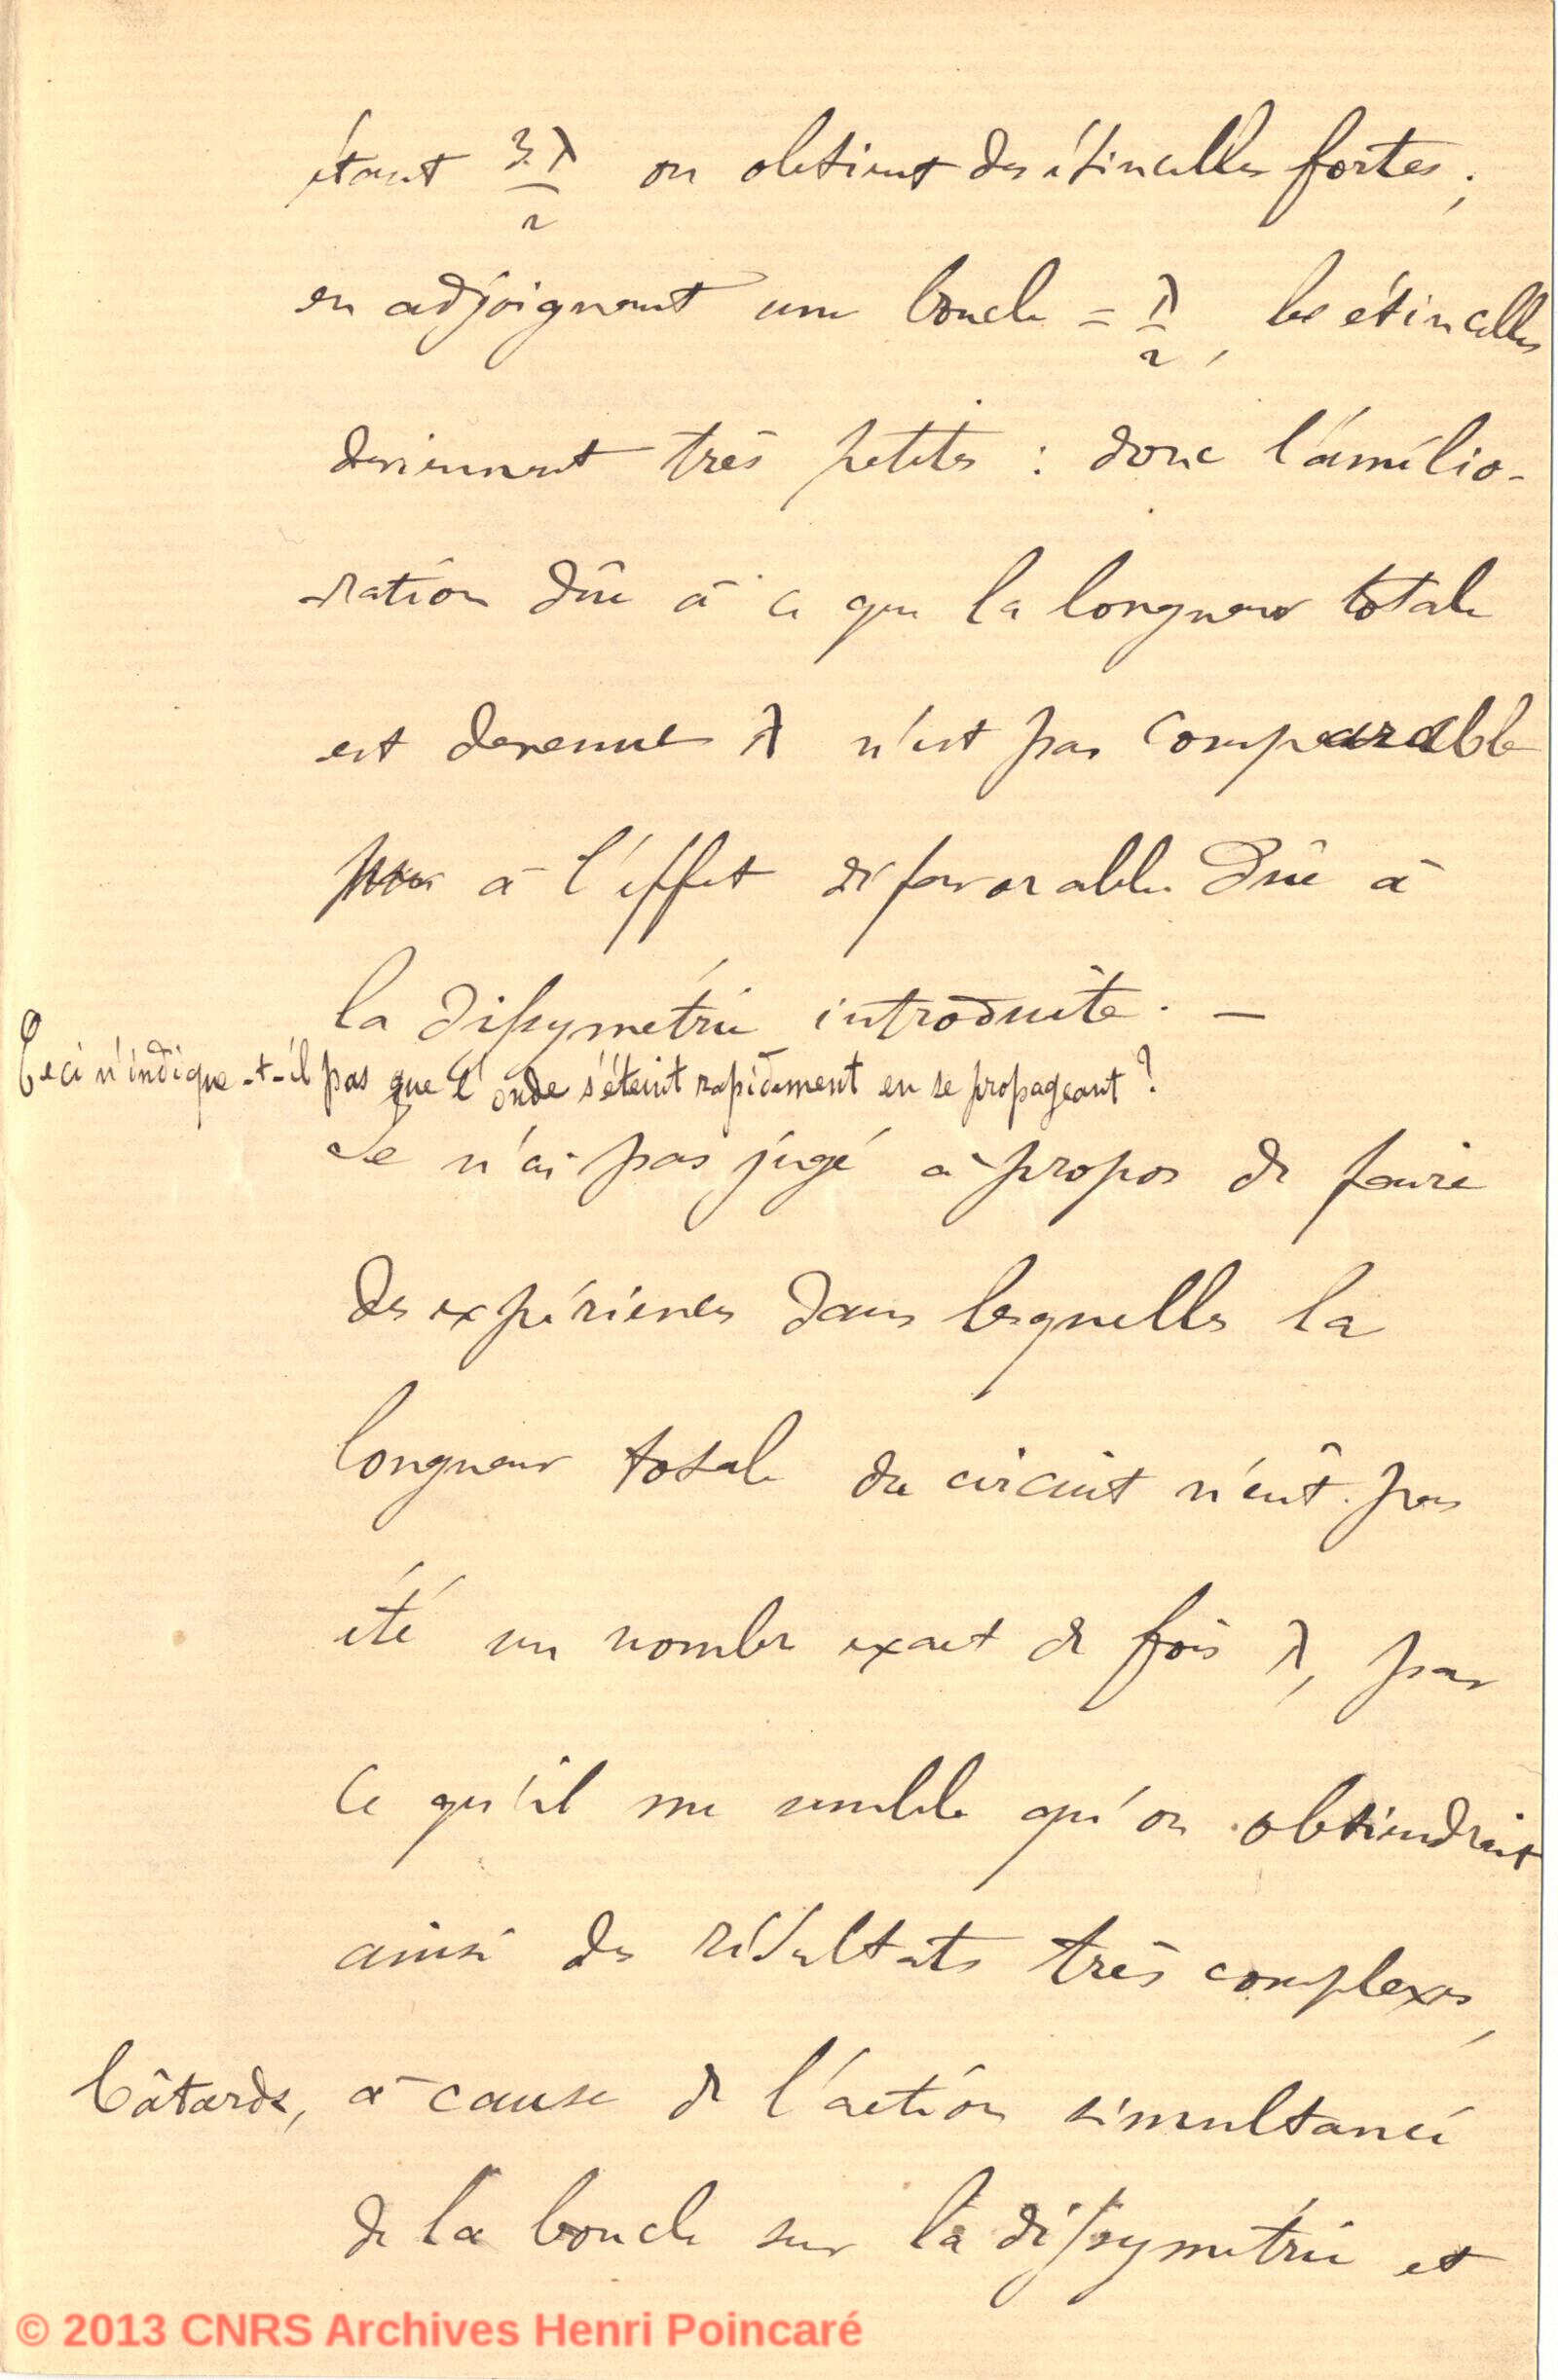 étant 3λ/2 on obtient des étincelles fortes ;
en adjoignant une boucle = λ/2, les étincelles
deviennent très petites : donc l'amélio-
-ration dûe à ce que la longueur totale
est devenue λ n'est pas comparable
à l'effet défavorable dûe à
la dissymétrie introduite. —
Ceci n'indique-t-il pas que l'onde s'éteint rapidement en se propageant ?
Je n'ai pas jugé à propos de faire
des expériences dans lesquelles la
longueur totale du circuit n'eût pas
été un nombre exact de fois λ, par
ce qu'il me semble qu'on obtiendrait
ainsi des résultats très complexes,
bâtards, à cause de l'action simultanée
de la boucle sur la dissymétrie et
© 2013 CNRS Archives Henri Poincaré